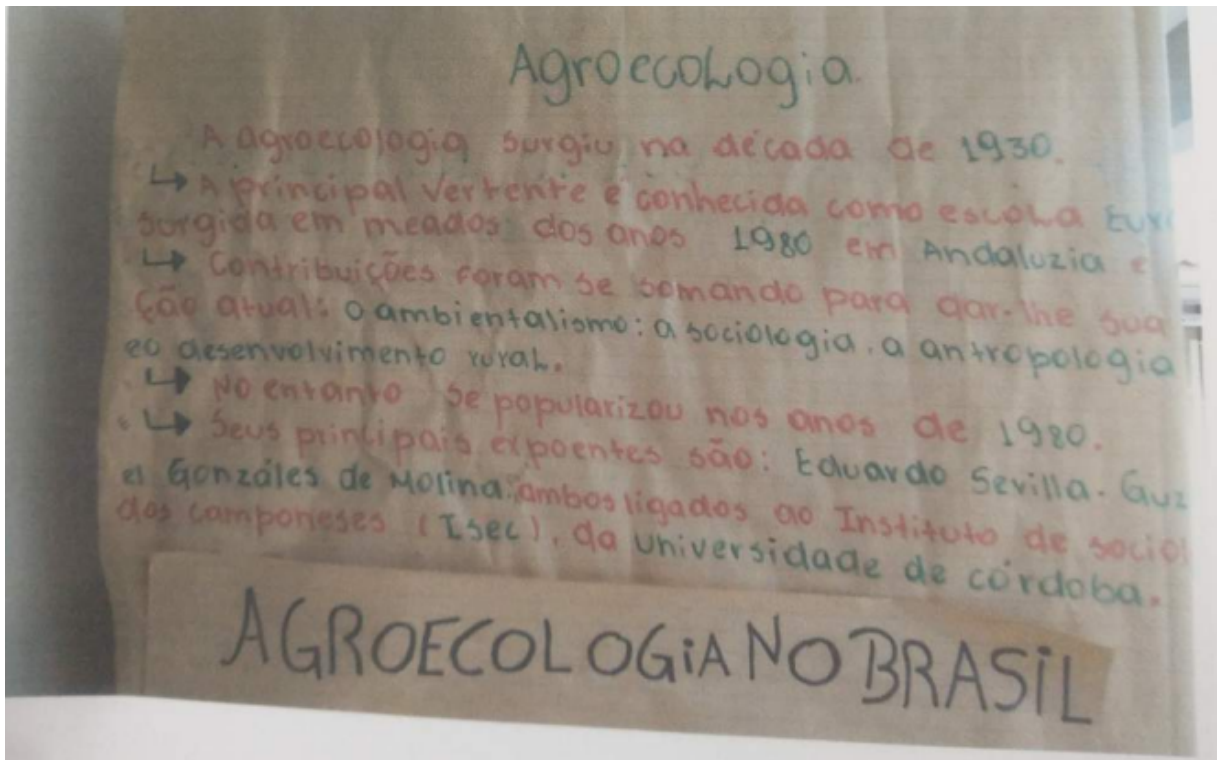 Agroecologia.
A agroecologia surgiu na década de 1930.
↳ A principal vertente é conhecida como escola
surgida em meados dos anos 1980 em Andaluzia e
↳ Contribuições foram se somando para dar-lhe sua
ção atual: o ambientalismo: a sociologia, a antropologia
eo desenvolvimento rural.
↳ No entanto se popularizou nos anos de 1980.
↳ Seus principais expoentes são: Eduardo Sevilla-Guz
el Gonzáles de Molina ambos ligados ao Instituto de sociol
dos camponeses (Isec), da universidade de córdoba.
AGROECOLOGiA NO BRASiL